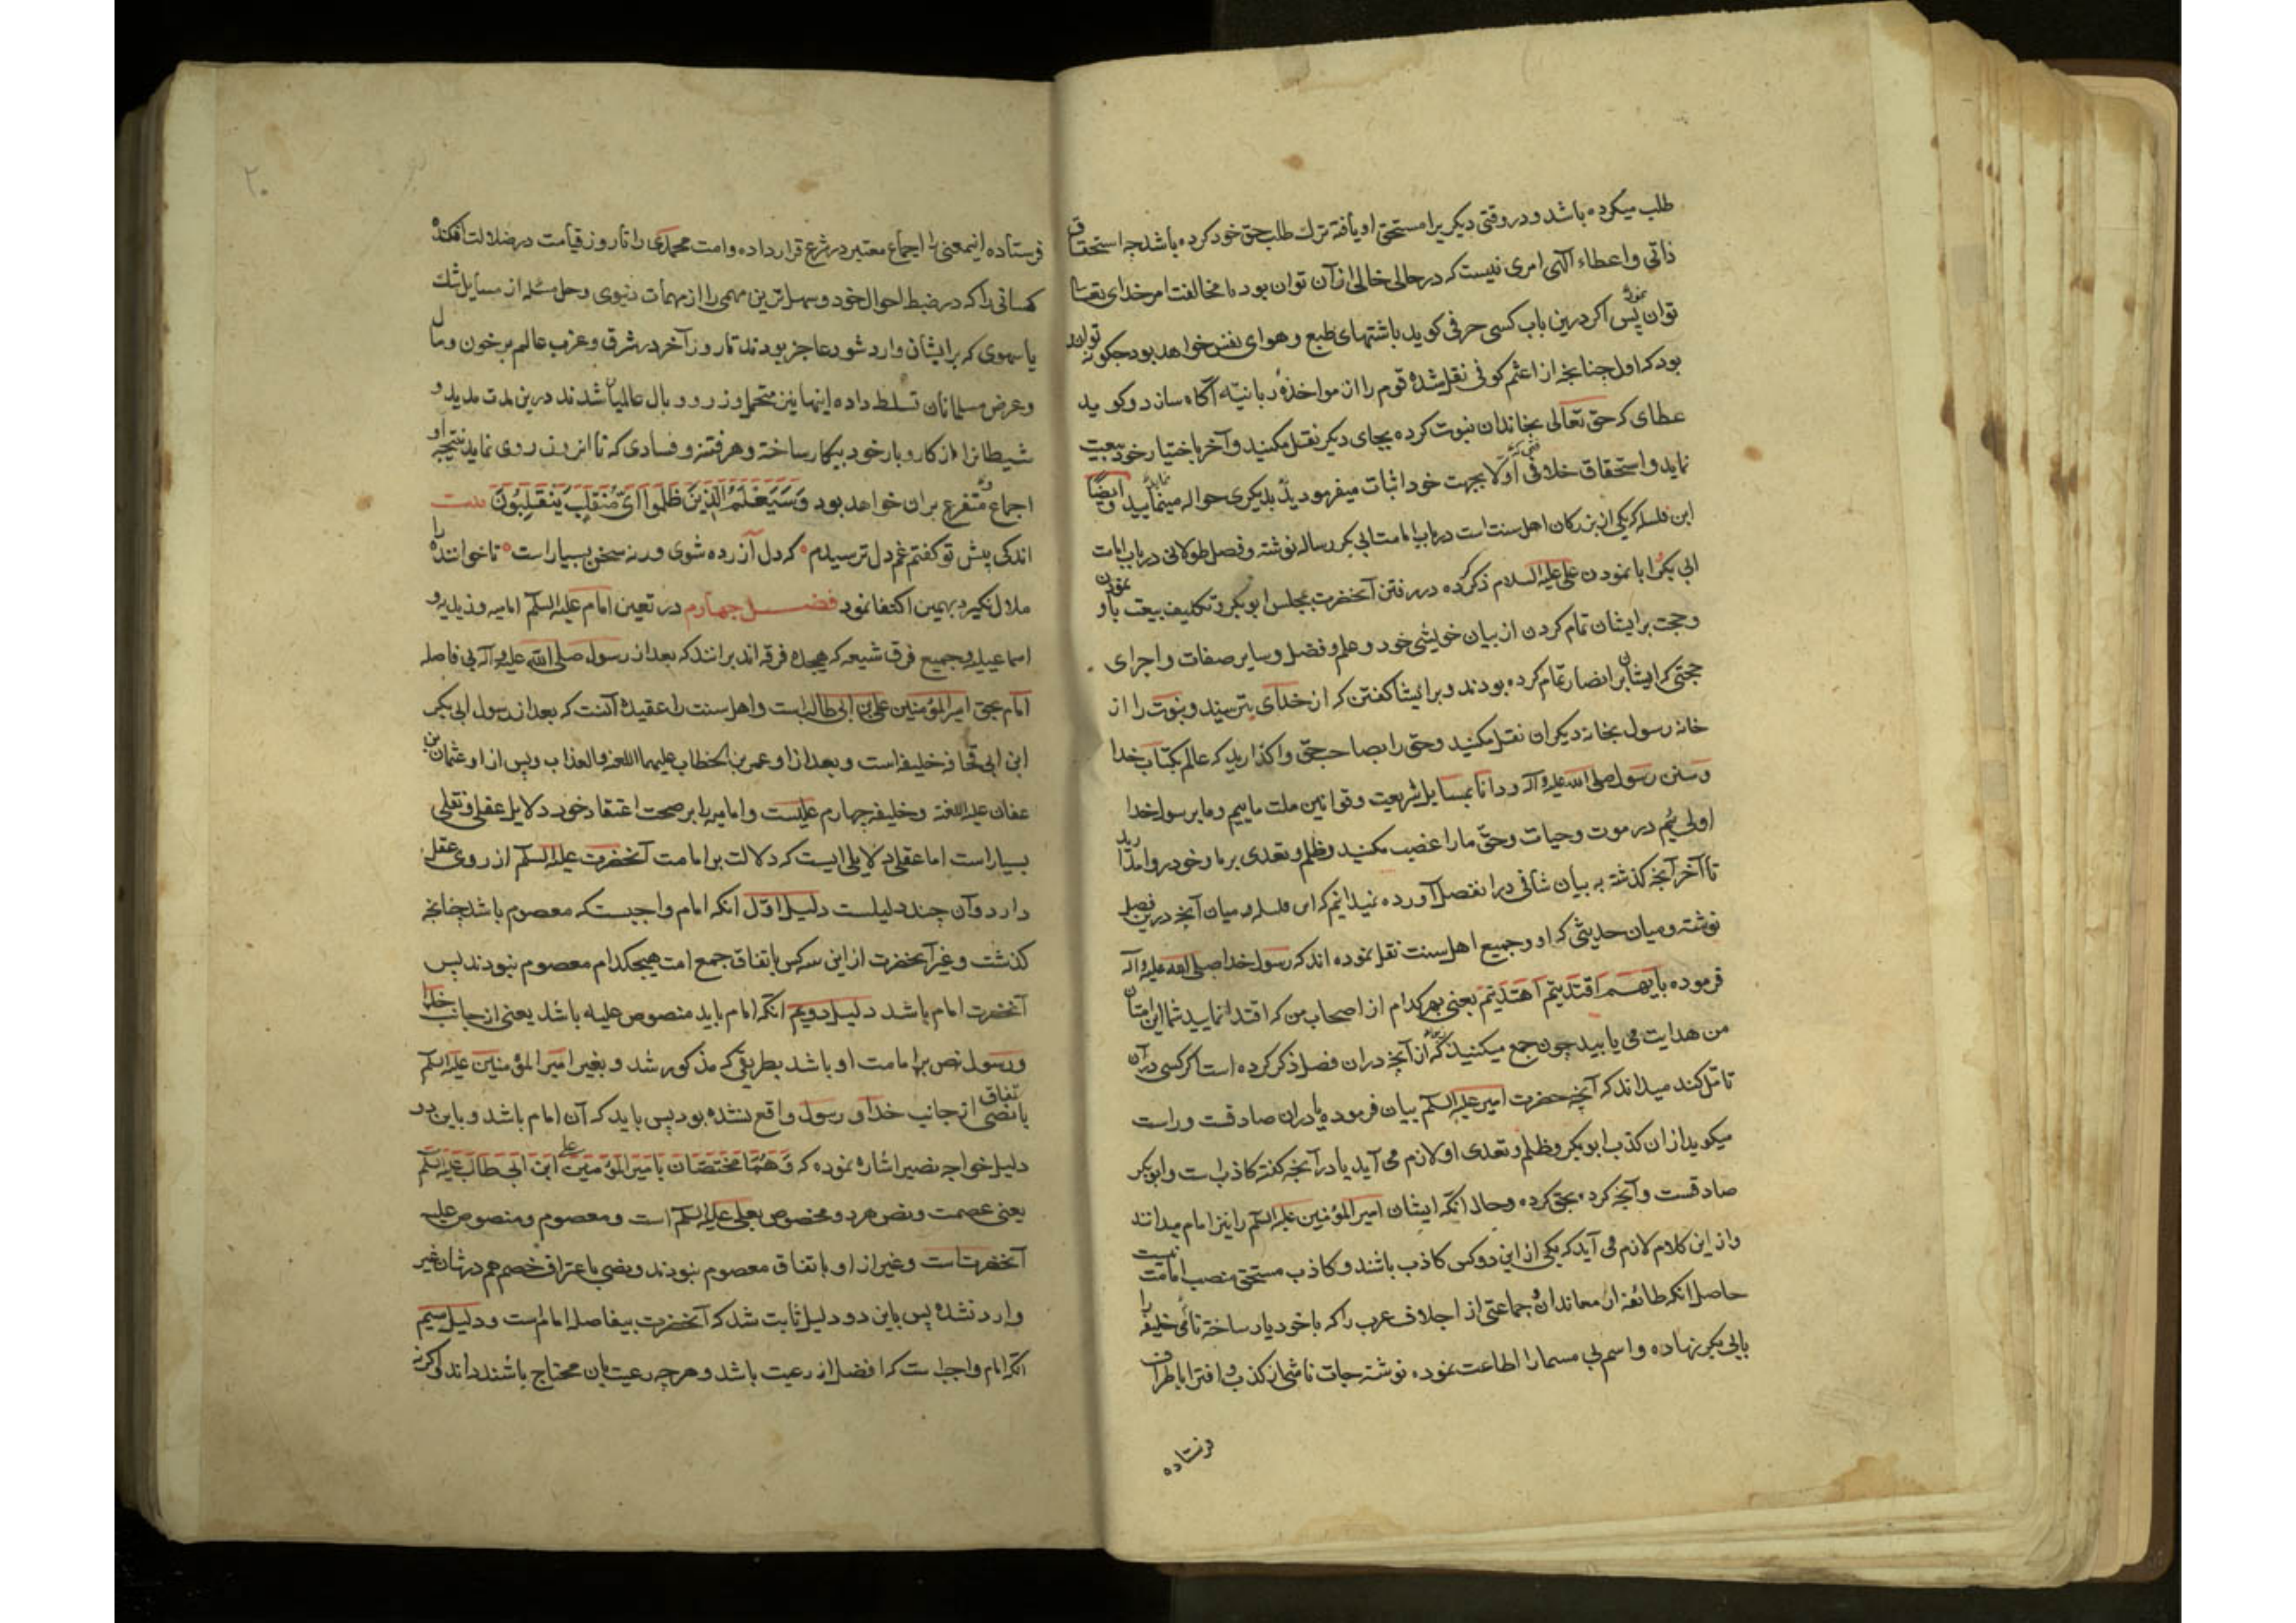 طلب میکرده باشد و در وقتی دیکر یرا مستحق او یافته ترك طلب حق خود کرده باشد چه استحقاق
ذاتی و اعطاء الهی امری نیست که در حالی خالی از آن توان بود با مخالفت امر خدای تعالی
توان نمود پس اکر درین باب کسی حرفی کوید باشتهای طبع و هوای نفس خواهد بود چکونه تواند
بود که اول چنانچه از اعثم کوفی نقل شده قوم را از مواخذهٔ ربانیه آکاه سازد و کوید
عطای که حق تعالی بخاندان نبوت کرده بجای دیکر نقل مکنید و آخر باختیار خود بیعت
نماید و استحقاق خلافتی که اولا بجهت خود اثبات میفرمود بدیکری حواله مینماید و ایضًا
ابن که یکی از بزرکان اهل سنت است در باب امامت ابی بکر رساله نوشته و فصل طولانی در باب امامت
ابی بکر و ابا نمودن علی علیه السلام ذکر کرده در رفتن آنحضرت بمجلس ابو بکر و تکلیف بیعت باو نمودن
و حجت بر ایشان تمام کردن از بیان خویشی خود و علم و فضل و سایر صفات و اجرای
حجتی که ایشان بر انصار تمام کرده بودند و بر ایشان کفتن که از خدای بترسید و نبوت را از
خانه رسول بخانه دیکران نقل مکنید و حق را بصاحب حق واکذارید که عالم بکتاب خدا
و سنن رسول صلی الله علیه و آله و دانا بمسایل شریعت و قوانین ملت ماییم و ما برسول خدا
اولی ئیم در موت و حیات و حق ما را غصب مکنید و ظلم و تعدی بر ما و خود روا مدارید
تا آخر آنچه کذشته به بیان شافی درا نفصل آورده نمیدانم که ابن میان آنچه درین فصل
نوشته و میان حدیثی که او و جمیع اهل سنت نقل نموده اند که رسول خدا صلی الله علیه و آله
فرموده بایهم اقتدیتم اهتدیتم یعنی بهر کدام از اصحاب من که اقتدا نمایید
من هدایت می یابید چون جمع میکنید که از آنچه دران فصل ذکر کرده است اکر کسی در آن
تامل کند میداند که آنچه حضرت امیر علیه السلم بیان فرموده یا دران صادقست و راست
میکوید از ان کذب ابو بکر و ظلم و تعدی او لازم می آید یا در آنچه کفته کاذب است و ابو بکر
صادقست و آنچه کرده بحق کرده و حال انکه ایشان امیر المؤمنین علیه السلم را نیز امام میدانند
و از این کلام لازم می آید که یکی از این دو کس کاذب باشند و کاذب مستحق منصب امامت نیست
حاصل انکه طائفه از معاندان و جماعتی از اجلاف عرب را که با خود یار ساخته نام خلیفه را
بابی بکر نهاده و اسم بی مسما را اطاعت نموده نوشته جات ناشی از کذب و افترا باطراف
فرستاده
۲۰
فرستاده اینمعنی را اجماع معتبر در شرع قرار داده و امت محمدی را تا روز قیامت در ضلالت افکنده
کسانی را که در ضبط احوال خود و سهل ترین مهمی را از مهمات دنیوی و حل مسئله از مسایل شك
یا سهوی که بر ایشان وارد شود عاجز بودند تا روز آخر در شرق و غرب عالم بر خون و مال
و عرض مسلمانان تسلط داده اینها نیز متحمل وزر و وبال عالمیان شدند درین مدت مدید و
شیطانرا از کار و بار خود بیکار ساخته و هر فتنه و فسادی که تا انروز روی نماید نتیجه او
اجماع و متفرع بران خواهد بود وَسَیَعْلَمُ الَّذِینَ ظَلَمُوا اَیَّ مُنْقَلَبٍ یَنْقَلِبُونَ بیت
اندکی پیش تو کفتم غم دل ترسیدم که دل آزرده شوی ورنه سخن بسیار است تا خواننده را
ملال نکیرد بهمین اکتفا نمود فصل چهارم در تعین امام علیه السلم امامیه و زیدیه و
اسماعیلیه و جمیع فرق شیعه که هیجده فرقه اند برانند که بعد از رسول صلی الله علیه و آله بی فاصله
امام بحق امیر المؤمنین علی بن ابی طالب است و اهل سنت را عقیده آنست که بعد از رسول ابی بکر
ابن ابی قحافه خلیفه است و بعد از او عمر بن الخطاب علیهما اللعنه و العذاب و پس از او عثمان بن
عفان علیه اللعنة و خلیفه چهارم علیست و امامیه را بر صحت اعتقاد خود دلایل عقلی و نقلی
بسیار است اما عقلی دلایلی ایست که دلالت بر امامت آنحضرت علیه السلم از روی عقل
دارد و آن چند دلیلست دلیل اوّل انکه امام واجبست که معصوم باشد چنانچه
کذشت و غیر آنحضرت از این سه کس باتفاق جمع امت هیچکدام معصوم نبودند پس
آنحضرت امام باشد دلیل دویم انکه امام باید منصوص علیه باشد یعنی از جانب خدا
و رسول نص بر امامت او باشد بطریقی که مذکور شد و بغیر امیر المؤمنین علیه السلم
باتفاق نصی از جانب خدا و رسول واقع نشده بود پس باید که آن امام باشد و باین دو
دلیل خواجه نصیر اشاره نموده که وَهُمَا مختصّان بامیر المؤمنین علی ابن ابی طالب علیه السلم
یعنی عصمت و نص هر دو مخصوص بعلی علیه السلم است و معصوم و منصوص علیه
آنحضرتست و غیر از او باتفاق معصوم نبودند و نصی باعتراف خصم هم در شان غیر
وارد نشده پس باین دو دلیل ثابت شد که آنحضرت بیفاصله امامست و دلیل سیم
انکه امام واجب است که افضل از رعیت باشد و هر چه رعیت بان محتاج باشند داند و اکر نه